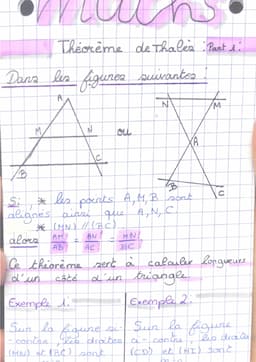 Maths
Théorème de Thalès : Part 1 :
Dans les figures suivantes :
A
M N
B C
ou
N M
A
B C
Si, * les points A, M, B sont
alignés ainsi que A, N, C
* (MN) // (BC)
alors AM/AB = AN/AC = MN/BC
Ce théorème sert à calculer longueurs
d'un côté d'un triangle
Exemple 1: Exemple 2:
Sur la figure ci- Sur la figure
-contre, les droites ci-contre, les droites
(MN) et (BC) sont (CD) et (HI) sont